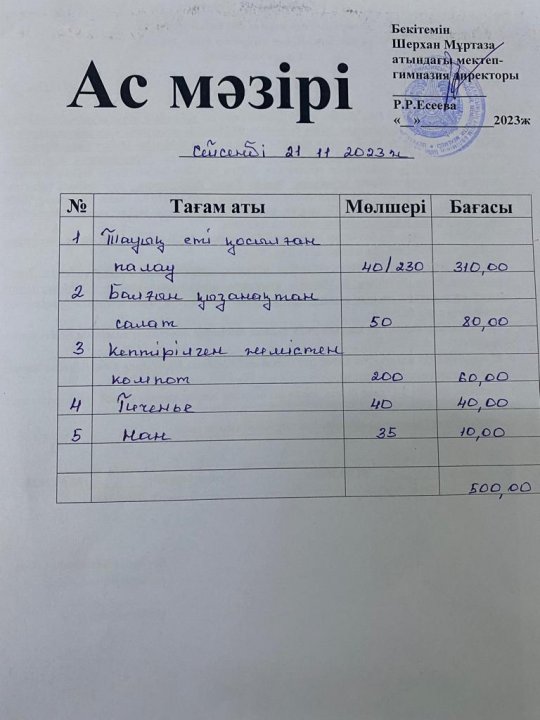 Бекітемін
Шерхан Мұртаза
атындағы мектеп-
гимназия директоры
Р.Р.Есеева
« » 2023ж
Ас мәзірі
сейсенбі 21 11 2023ж
№ Тағам аты Мөлшері Бағасы
1 Тауық еті қосылған
палау 40/230 310,00
2 Балғын қызанақтан
салат 50 80,00
3 Кептірілген жемістен
компот 200 60,00
4 Печенье 40 40,00
5 Нан 35 10,00
500,00